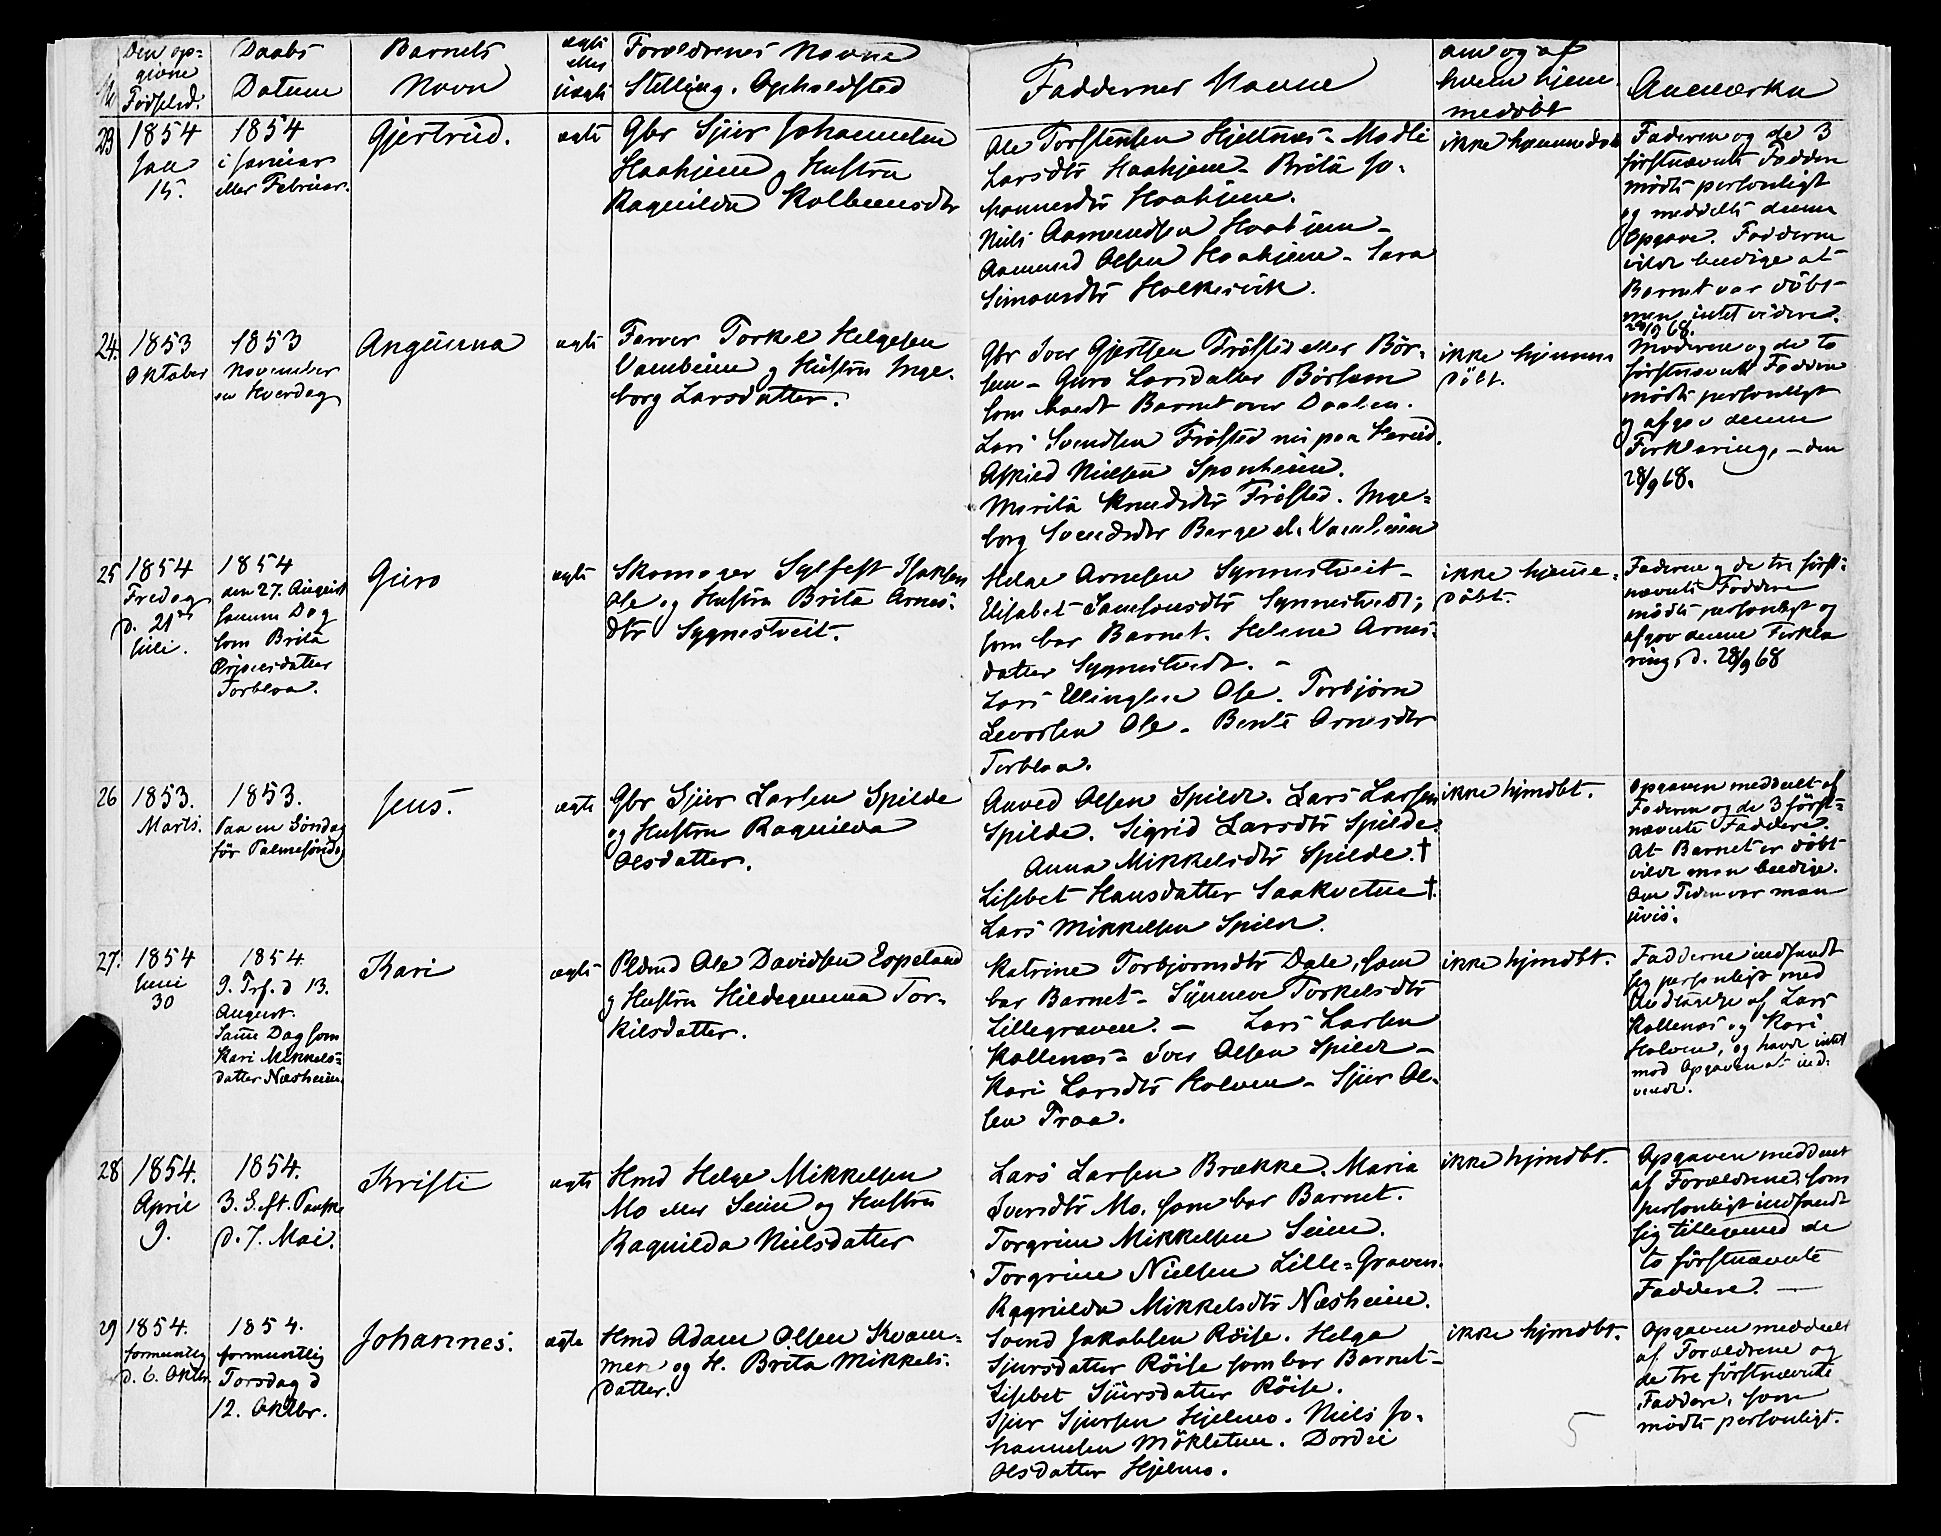 No
Den op=
givne
Fødselsd.
Daabs
Datum
Barnets
Navn
ægte
eller
uægte
Forældrenes Navne
Stilling. Opholdsted
Faddernes Navne
om og af
hvem hjem=
medøbt
Anmærkn
23
1854
Jan
15.
1854
i Januar
eller Februar.
Gjertrud.
ægte
Gbr Sjur Johannesen
Haahjem og Hustru
Ragnilda Kolbensdtr
Ole Torstensen Hjeltnæs - Madli
Larsdtr Haahjem - Brita Jo=
hannesdtr Haahjem.
Niels Aamundsen Haahjem -
Aamund Olsen Haahjem - Sara
Simonsdtr Holkesvik.
ikke hjemmedøb
Faderen og de 3
førstnævnte Faddere
mødte personligt
og meddelte denne
Opgave. Fadderne
vilde beedige at
Barnet var døbt -
men intet videre.
28/9 68.
24.
1853
Oktober
1853
November
en Hverdag
Angunna
ægte
Farver Torkel Helgesen
Vambeim og Hustru Inge=
borg Larsdatter.
Gbr Iver Gjertsen Trøsted eller Bør=
sem - Guro Larsdatter Børsem
som havde Barnet over Daaben.
Lars Svendsen Trøsted nu paa
Nielsen Sponheim.
Marita Knudsdtr Trøsted. Inge=
borg Svendsdtr Berge el. Vambeim
ikke hjemme
døbt.
Moderen og de to
førstnævnte Faddere
mødte personligt
og afgav denne
Forklaring, - den
28/9 68.
25
1854
Fredag
d. 21de
Juli.
1854
den 27. August
samme Dag
som Brita
Torbloa.
Guro
ægte
Skomager Sylfest Isaksen
Ose og Hustru Brita Arnes=
dtr Sygnestveit.
Helge Arnesen Synnestveit -
Elisabet Samsonsdtr Synnestvedt;
som bar Barnet. Helene Arnes=
datter Synnestvedt. -
Lars Ellingsen Ose. Torbjørn
Levorsen Ose - Bente Arnesdtr
Torbloa.
ikke hjemme=
døbt.
Faderen og de tre først=
nævnte Faddere
mødte personligt og
afgav denne Forkla
ring d. 28/9 68
26
1853.
Marts.
1853.
Paa en Søndag
før Palmesøndag
Jens.
ægte
Gbr Sjur Larsen Spilde
og Hustru Ragnilda
Olsdatter.
Anved Olsen Spilde. Lars Larsen
Spilde. Sigrid Larsdtr Spilde.
Anna Mikkelsdtr Spilde. †
Lisbet Hansdatter Saakvetne †.
Lars Mikkelsen Spilde.
ikke hjmdbt.
Opgaven meddeelt af
Faderen og de 3 først=
nævnte Faddere.
At Barnet er døbt
vilde man beedige.
Om Tiden var man
uvis.
27.
1854
Juni
30
1854
9. Trf. d 13.
August.
Samme Dag som
Kari Mikkels=
datter Næsheim.
Kari
ægte
Pldmd Ole Davidsen Espeland
og Hustru Hildegunna Tor=
kilsdatter.
Katrine Torbjørnsdtr Dale, som
bar Barnet - Synneve Torkelsdtr
Lillegraven. - Lars Larsen
Kollenæs - Iver Olsen Spilde -
Kari Larsdtr Holven - Sjur Ol=
sen Traa.
ikke hjmdbt.
Fadderne indfandt
sig personligt med
Undtagelse af Lars
Kollenæs og Kari
Holven, og havde intet
mod Opgaven at ind=
vende.
28
1854.
April
9.
1854.
3. S. eft. Paaske
d. 7. Mai.
Kristi
ægte
Hmd Helge Mikkelsen
Mo eller Seim og Hustru
Ragnilda Nielsdatter
Lars Larsen Brække. Maria
Iversdtr Mo, som bar Barnet.
Torgrim Mikkelsen Seim.
Torgrim Nielsen Lille=Graven.
Ragnilda Mikkelsdtr Næsheim.
ikke hjmdbt.
Opgaven meddeelt
af Forældrene, som
personligt indfandt
sig tilligemed de
to førstnævnte
Faddere. -
29
1854.
formentlig
d. 6. Oktbr
1854.
formentlig
Torsdag d
12. Oktbr.
Johannes.
ægte
Hmd Adam Olsen Kvam=
men og H. Brita Mikkels=
datter.
Svend Jakobsen Røise. Helga
Sjursdatter Røise som bar Barnet -
Lisbet Sjursdatter Røise.
Sjur Sjursen Hjelmo. Niels Jo=
hannesen Mökletun. Dordei
Olsdatter Hjelmo.
ikke hjmdbt.
Opgaven meddeelt
af Forældrene og
de tre førstnævnte
Faddere, som
mødte personligt.
5